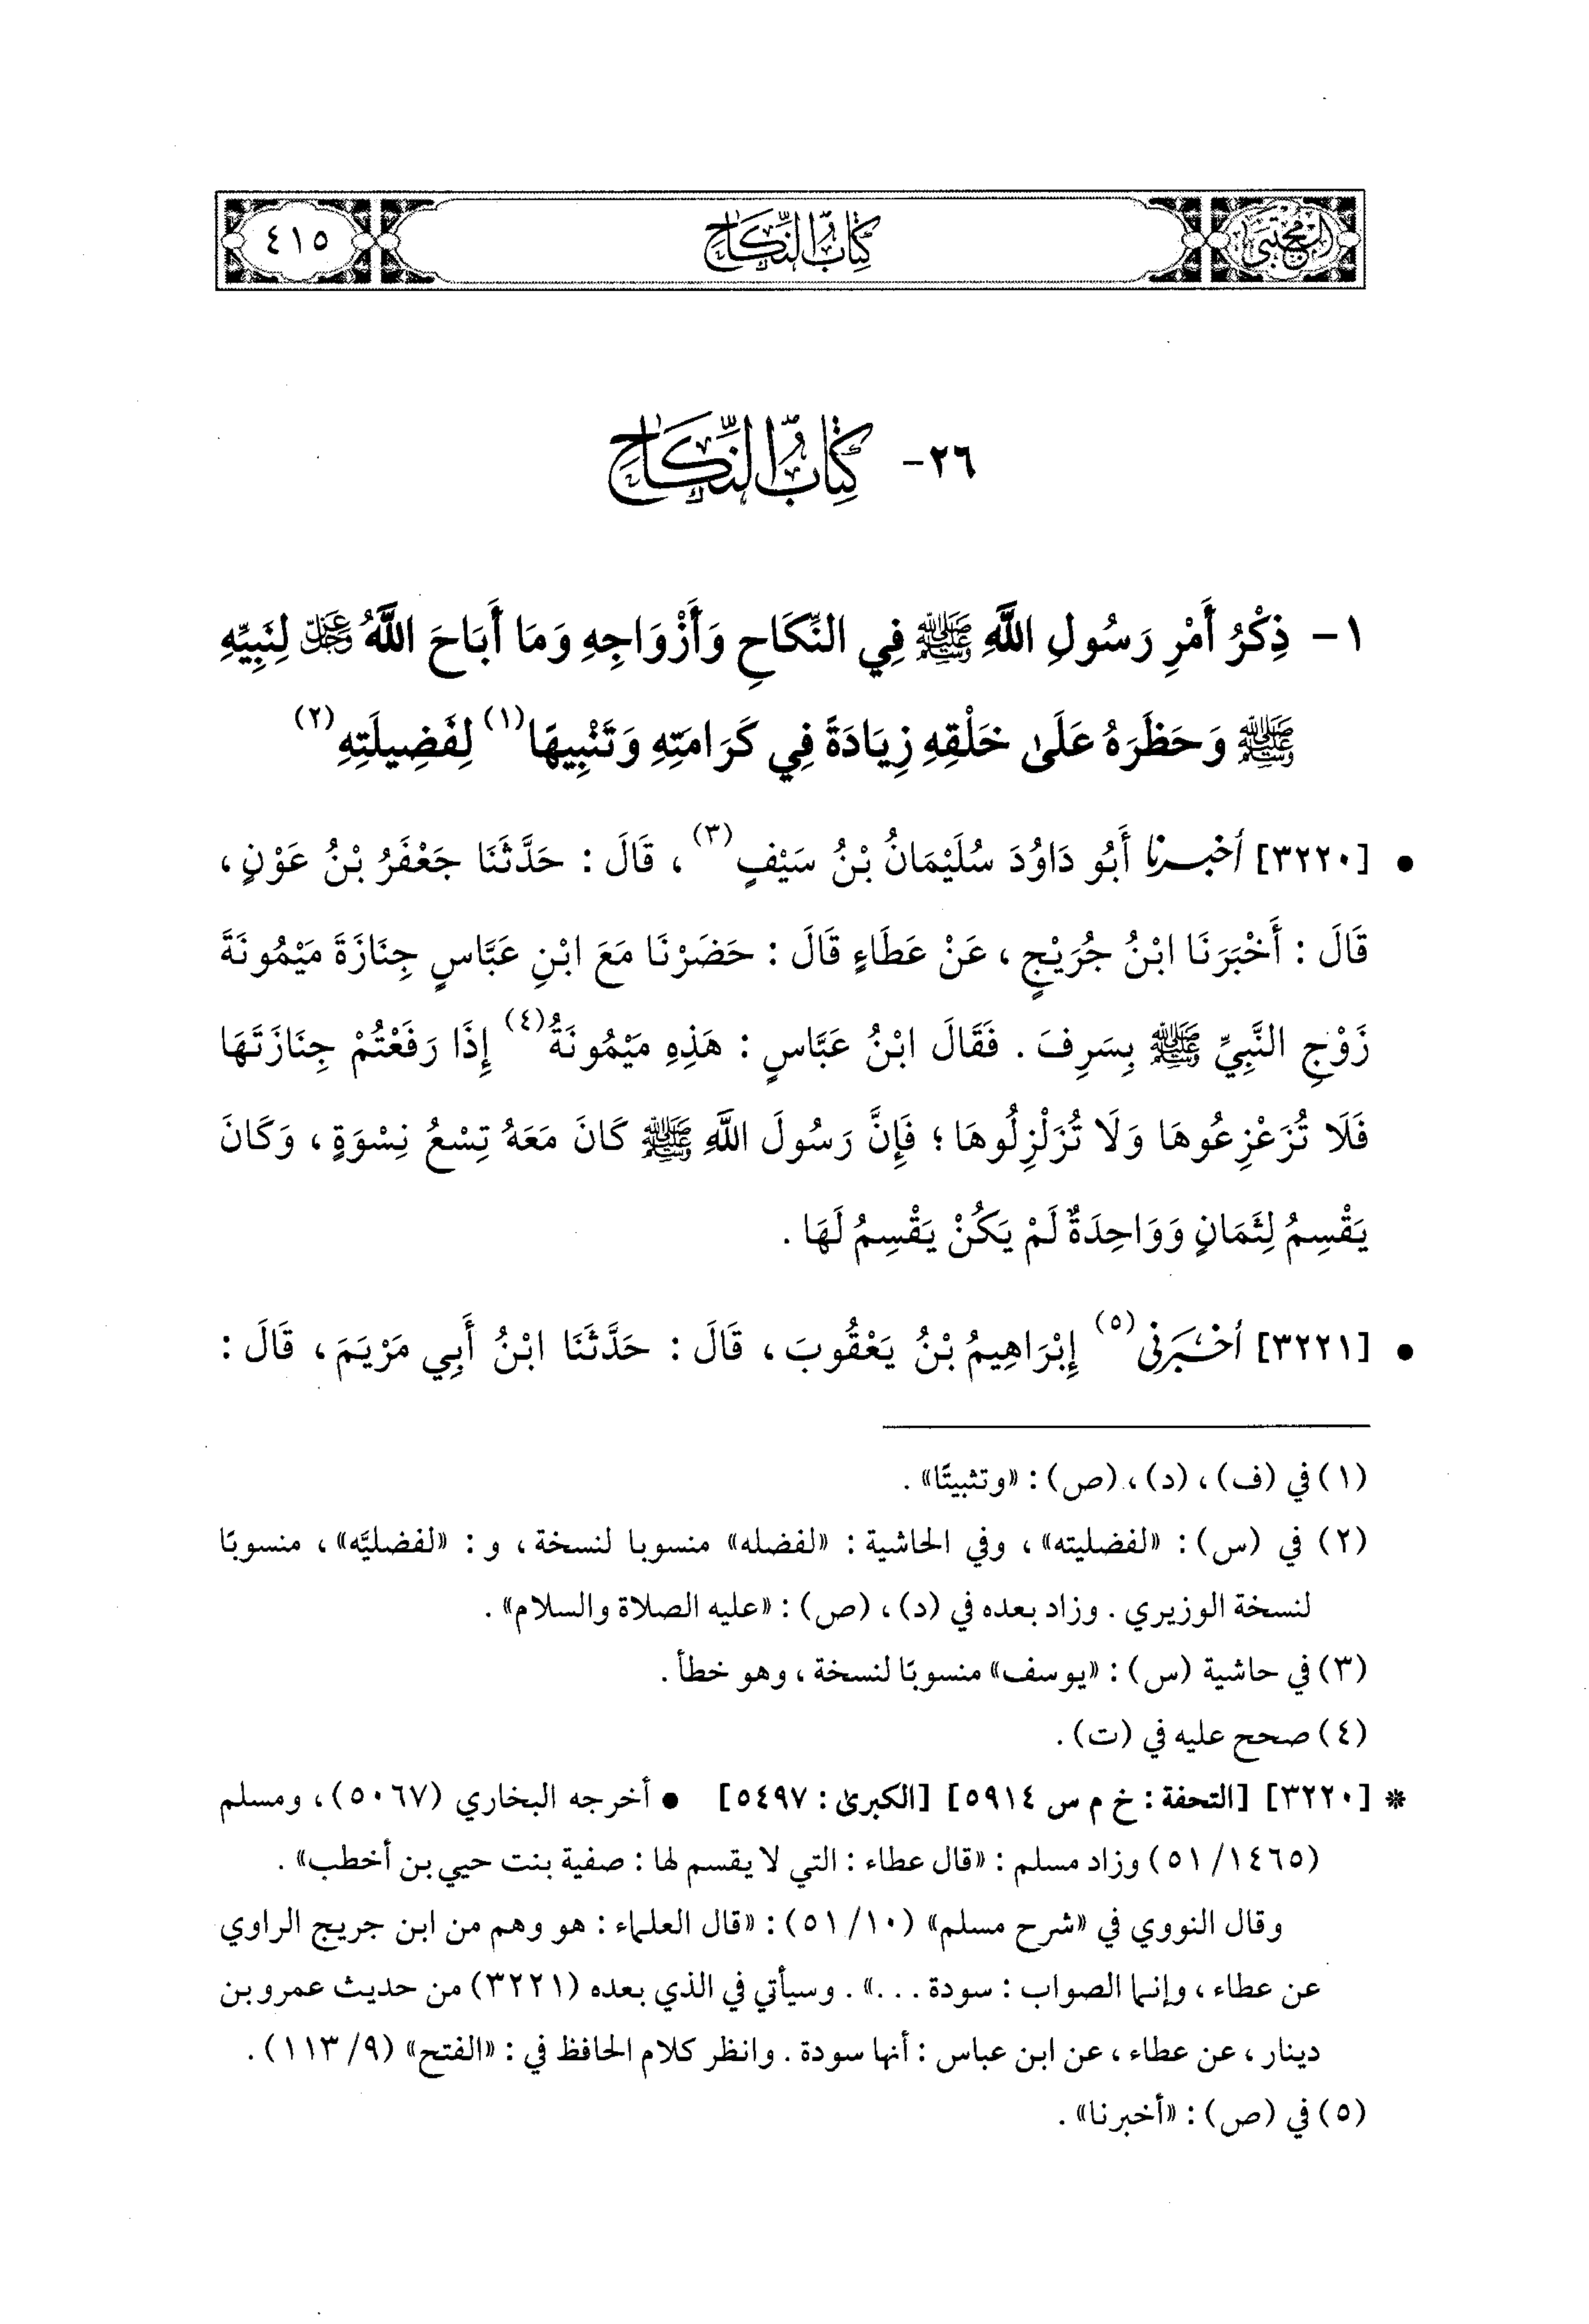 المجتبى
كتاب النكاح
٤١٥
٢٦- كِتَابُ النِّكَاحِ
١- ذِكْرُ أَمْرِ رَسُولِ اللَّهِ ﷺ فِي النِّكَاحِ وَأَزْوَاجِهِ وَمَا أَبَاحَ اللَّهُ عَزَّ وَجَلَّ لِنَبِيِّهِ
ﷺ وَحَظَرَهُ عَلَىٰ خَلْقِهِ زِيَادَةً فِي كَرَامَتِهِ وَتَنْبِيهًا(١) لِفَضِيلَتِهِ(٢)
• [٣٢٢٠] أخبرنا أَبُو دَاوُدَ سُلَيْمَانُ بْنُ سَيْفٍ(٣)، قَالَ : حَدَّثَنَا جَعْفَرُ بْنُ عَوْنٍ،
قَالَ : أَخْبَرَنَا ابْنُ جُرَيْجٍ، عَنْ عَطَاءٍ قَالَ : حَضَرْنَا مَعَ ابْنِ عَبَّاسٍ جِنَازَةَ مَيْمُونَةَ
زَوْجِ النَّبِيِّ ﷺ بِسَرِفَ . فَقَالَ ابْنُ عَبَّاسٍ : هَذِهِ مَيْمُونَةُ(٤) إِذَا رَفَعْتُمْ جِنَازَتَهَا
فَلَا تُزَعْزِعُوهَا وَلَا تُزَلْزِلُوهَا؛ فَإِنَّ رَسُولَ اللَّهِ ﷺ كَانَ مَعَهُ تِسْعُ نِسْوَةٍ، وَكَانَ
يَقْسِمُ لِثَمَانٍ وَوَاحِدَةٌ لَمْ يَكُنْ يَقْسِمُ لَهَا .
• [٣٢٢١] أَخْبَرَنِي(٥) إِبْرَاهِيمُ بْنُ يَعْقُوبَ، قَالَ : حَدَّثَنَا ابْنُ أَبِي مَرْيَمَ، قَالَ :
(١) في (ف)، (د)، (ص) : «وتثبيتًا» .
(٢) في (س) : «لفضليته»، وفي الحاشية : «لفضله» منسوبا لنسخة، و : «لفضليَّه»، منسوبًا
لنسخة الوزيري . وزاد بعده في (د)، (ص) : «عليه الصلاة والسلام» .
(٣) في حاشية (س) : «يوسف» منسوبًا لنسخة، وهو خطأ .
(٤) صحح عليه في (ت) .
* [٣٢٢٠] [التحفة : خ م س ٥٩١٤] [الكبرىٰ : ٥٤٩٧] • أخرجه البخاري (٥٠٦٧)، ومسلم
(٥١/١٤٦٥) وزاد مسلم : «قال عطاء : التي لا يقسم لها : صفية بنت حيي بن أخطب» .
وقال النووي في «شرح مسلم» (٥١/١٠) : «قال العلماء : هو وهم من ابن جريج الراوي
عن عطاء، وإنما الصواب : سودة ...» . وسيأتي في الذي بعده (٣٢٢١) من حديث عمرو بن
دينار، عن عطاء، عن ابن عباس : أنها سودة . وانظر كلام الحافظ في : «الفتح» (٩/ ١١٣) .
(٥) في (ص) : «أخبرنا» .